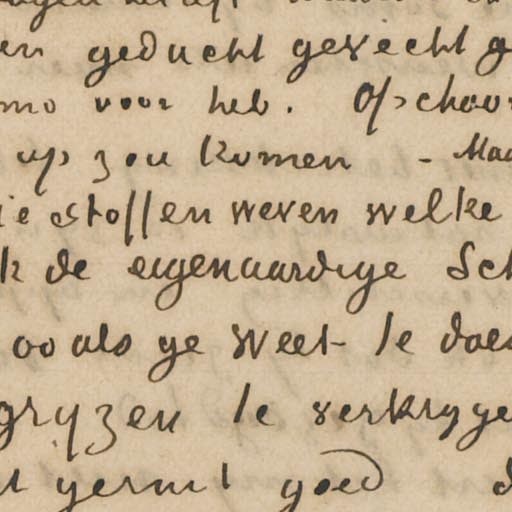 en geducht gevecht g
mo voor heb. Ofschoon
op zou komen - Maa
ie stoffen weven welke
k de eigenaardige Sch
zooals ge weet - te doen
gryzen te verkryge
t germt goed d